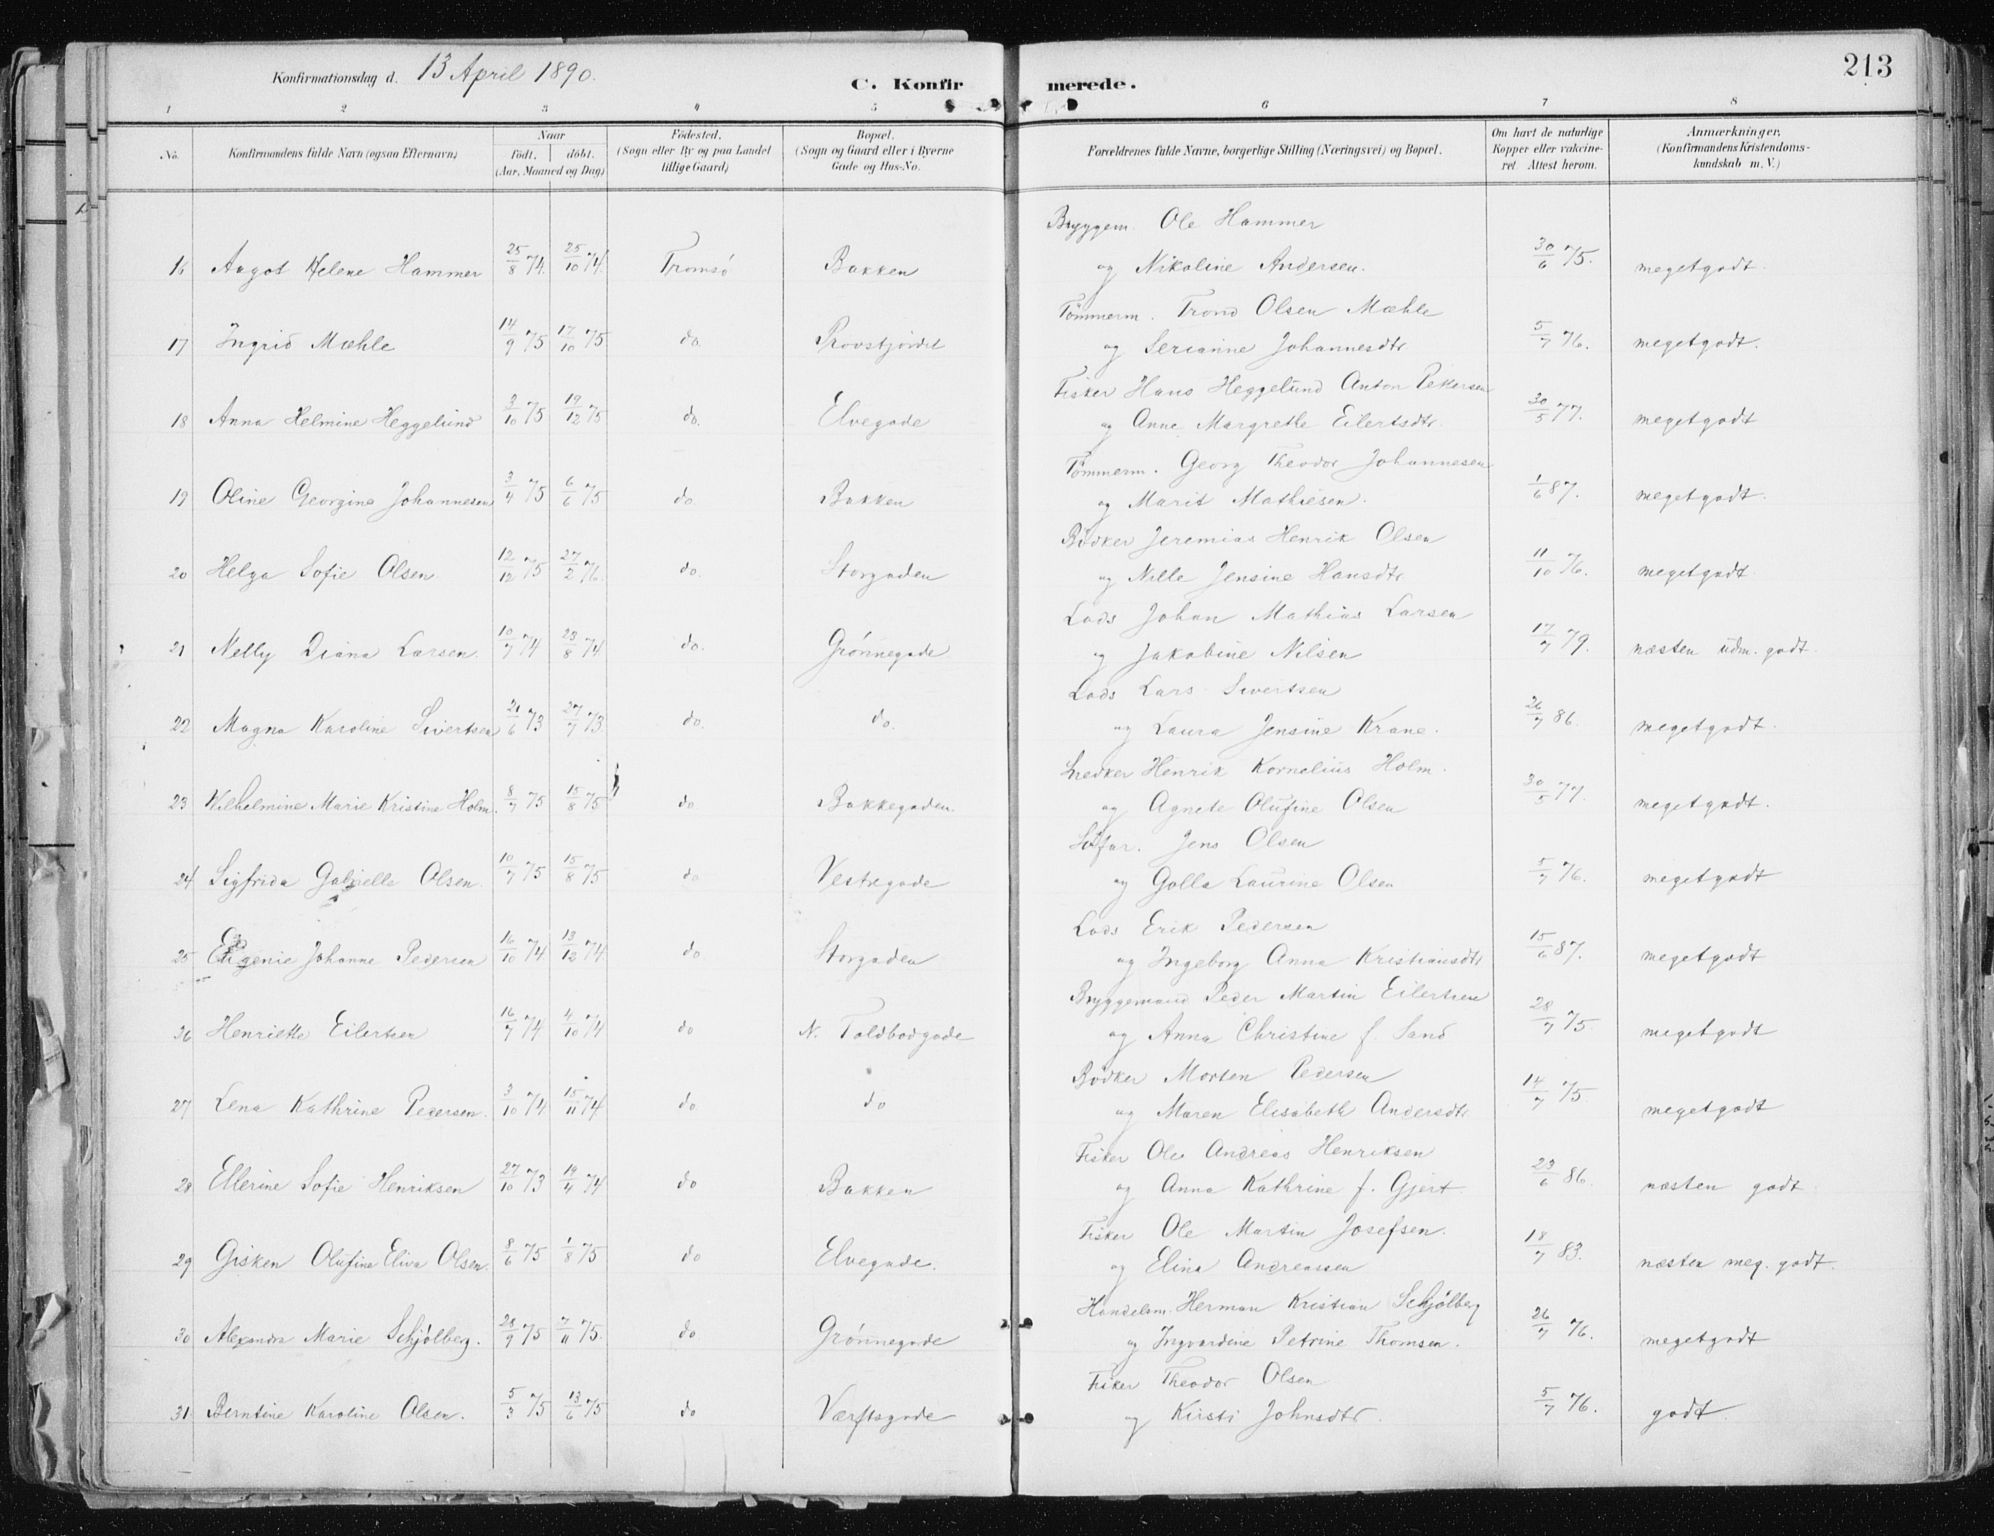 Konfirmationsdag d. 13 April 1890.
C. Konfirmerede.
213
1 2 3 4 5 6 7 8
No. Konfirmandens fulde Navn (ogsaa Efternavn) Naar Født, døbt. (Aar, Maaned og Dag) Fødested. (Sogn eller By og paa Landet tillige Gaard) Bopæl. (Sogn og Gaard eller i Byerne Gade og Hus-No. Forældrenes fulde Navne, borgerlige Stilling (Næringsvei) og Bopæl. Om havt de naturlige Kopper eller vakcineret. Attest herom. Anmærkninger. (Konfirmandens Kristendomskundskab m. V.)
Bryggem. Ole Hammer
16 Aagot Helene Hammer 25/8 74. 25/10 74. Tromsø Bakken og Nikoline Andersen. 30/6 75. megetgodt.
Tømmerm. Trond Olsen Mæhle
17 Ingrid Mæhle 14/9 75 17/10 75 do. Provstjordet og Serianne Johannesdtr 5/7 76. megetgodt.
Fisker Hans Heggelund Anton Pettersen
18 Anna Helmine Heggelund 3/10 75 19/12 75 do. Elvegade og Anne Margrethe Eilertsdtr. 30/5 77. megetgodt
Tømmerm. Georg Theodor Johannesen
19 Oline Georgine Johannesen 3/4 75 6/6 75 do Bakken og Marit Mathiesen. 1/6 87. megetgodt.
Bødker Jeremias Henrik Olsen
20 Helga Sofie Olsen 12/12 75 27/2 76. do. Storgaden og Nille Jensine Hansdtr 11/10 76. megetgodt.
Lods Johan Mathias Larsen
21 Nelly Diana Larsen. 10/7 74 23/8 74. do. Grønnegade og Jakobine Nilsen 17/7 79. næsten udm. godt.
Lods Lars Sivertsen
22 Magna Karoline Sivertsen 21/6 73 27/7 73. do. do. og Laura Jensine Krane. 26/7 86. megetgodt.
Snedker Henrik Kornelius Holm.
23 Vilhelmine Marie Kristine Holm. 8/7 75 15/8 75 do Bakkegaden. og Agnete Olufine Olsen 30/5 77. megetgodt.
Søfar. Jens Olsen
24 Sigfrida Gabrielle Olsen. 10/7 75 15/8 75 do Vestregade og Golla Laurine Olsen 5/7 76. megetgodt
Lods Erik Pedersen
25 Eugenie Johanne Pedersen 16/10 74 13/12 74 do Storgaden og Ingeborg Anna Kristiansdtr 15/6 87. megetgodt
Bryggemand Peder Martin Eilertsen
26 Henriette Eilertsen 16/7 74 4/10 74 do N. Toldbodgade og Anna Christine f. Sand 28/7 75. megetgodt
Bødker Morten Pedersen
27 Lena Kathrine Pedersen. 3/10 74 15/11 74 do do og Maren Elisabeth Andersdtr 14/7 75. megetgodt
Fisker Ole Andreas Henriksen
28 Ellerine Sofie Henriksen 27/10 73 19/4 74 do Bakken og Anna Kathrine f. Gjert 23/6 86. næsten godt
Fisker Ole Martin Josefsen.
29 Gisken Olufine Eliva Olsen. 8/6 75 1/8 75 do Elvegade. og Elina Andreassen 18/7 83. næsten meg. godt.
Handelsm. Herman Kristian Schjølberg
30 Alexandra Marie Schjølberg. 28/9 75 7/11 75. do Grønnegade og Ingvardine Petrine Thomsen. 26/7 76. megetgodt
Fisker Theodor Olsen
31 Berntine Karoline Olsen. 5/3 75 13/6 75 do Værftsgade og Kirsti Johnsdtr. 5/7 76. godt